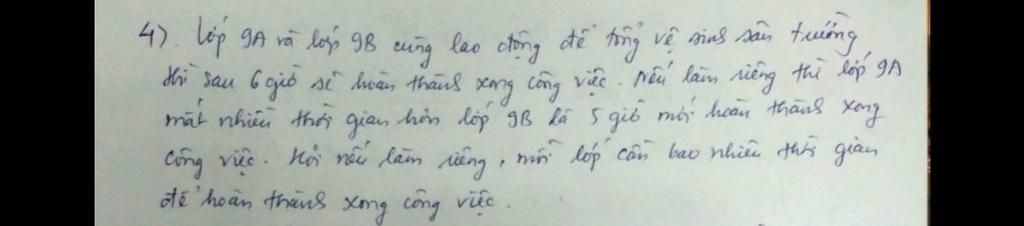 4) Lớp 9A và lớp 9B cùng lao động để tổng vệ sinh sân trường
thì sau 6 giờ sẽ hoàn thành xong công việc. Nếu làm riêng thì lớp 9A
mất nhiều thời gian hơn lớp 9B là 5 giờ mới hoàn thành xong
công việc. Hỏi nếu làm riêng, mỗi lớp cần bao nhiêu thời gian
để hoàn thành xong công việc.